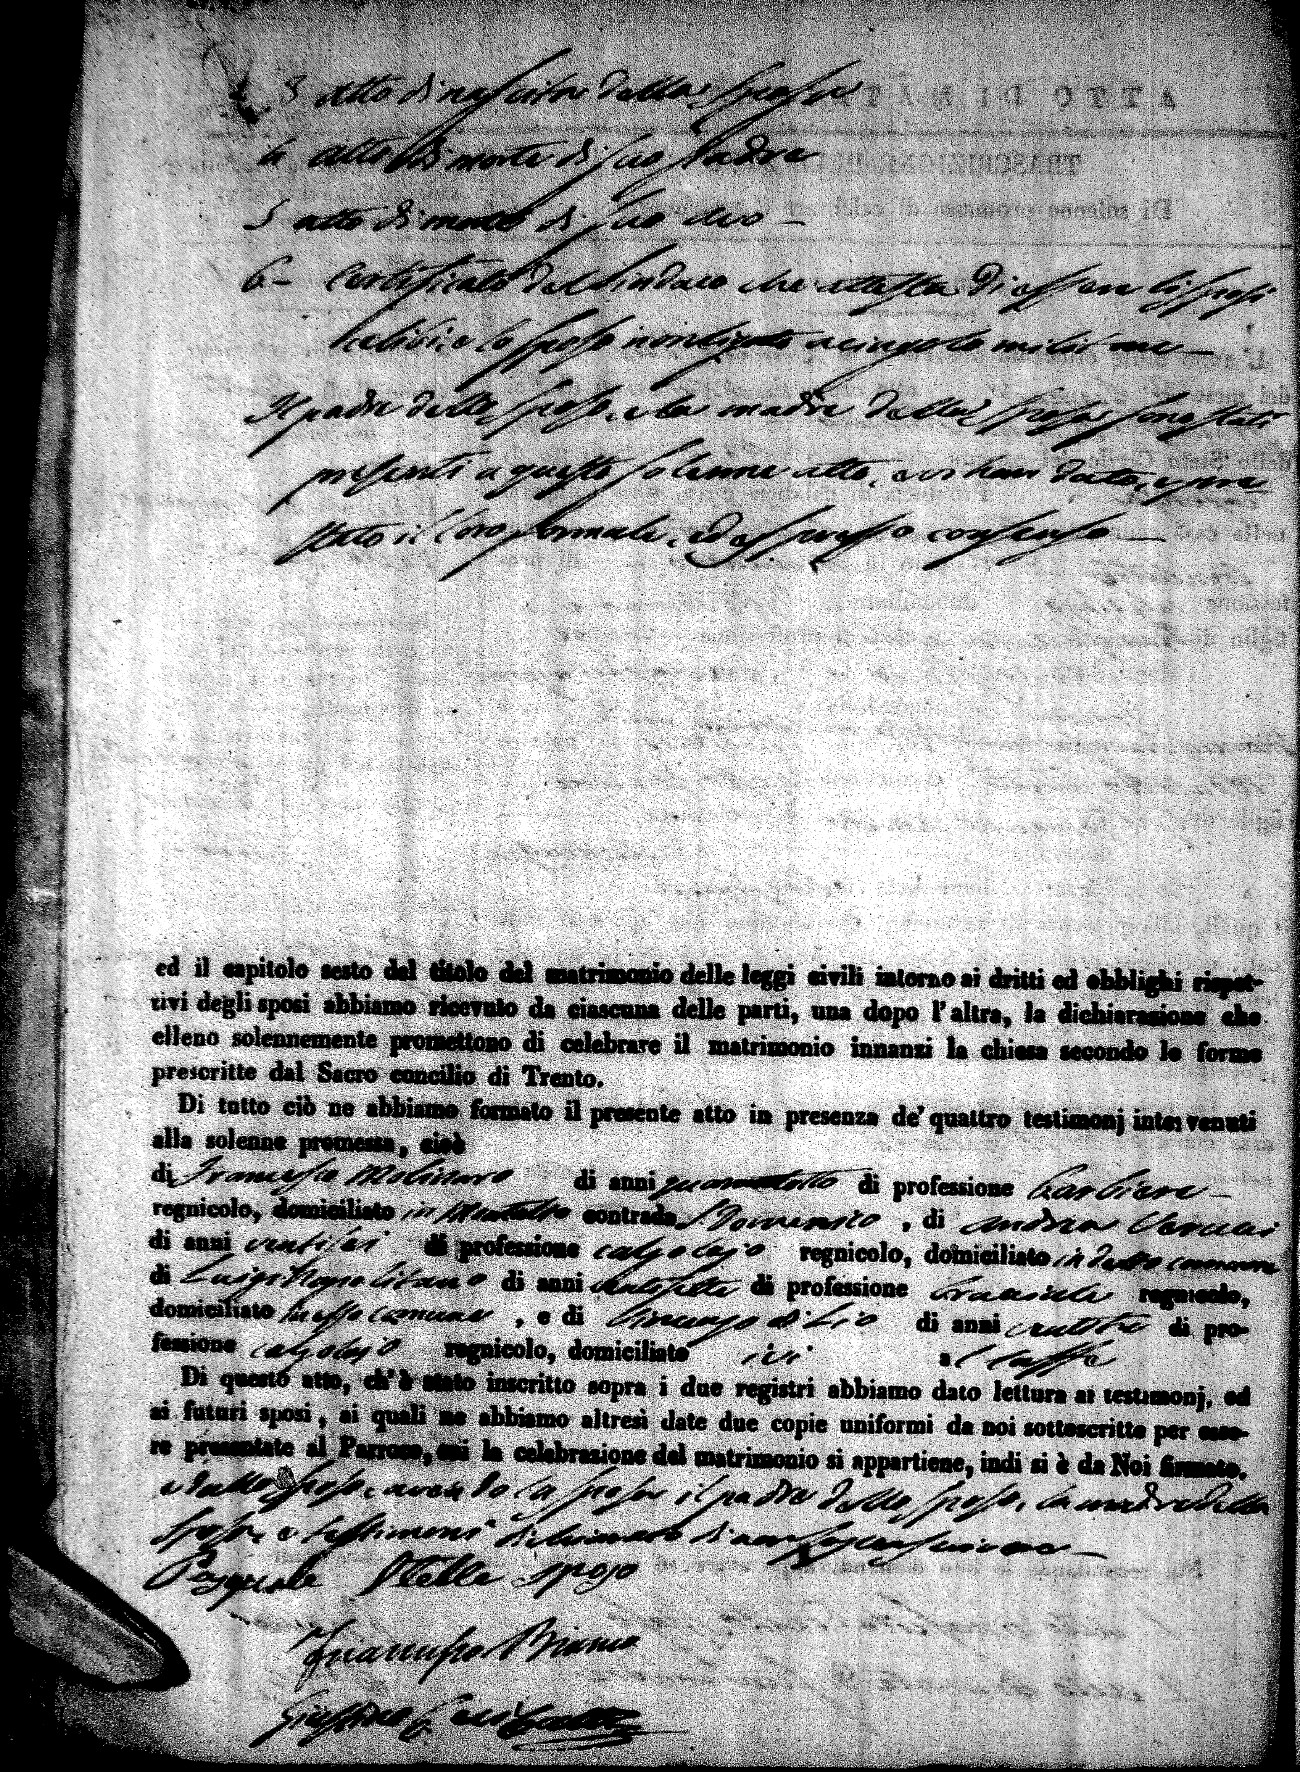 3 atto di nascita della sposa
4 atto di morte di suo Padre
5 atto di morte di suo avo —
6.— Certificato del Sindaco che attesta di essere li sposi
celibi, e lo sposo non ligato a cingolo militare —
Il padre dello sposo, e la madre della sposa sono stati
presenti a questo solenne atto, e vi han dato, e pre
stato il loro formale, ed espresso consenso —
ed il capitolo sesto del titolo del matrimonio delle leggi civili intorno ai dritti ed obblighi rispet-
tivi degli sposi abbiamo ricevuto da ciascuna delle parti, una dopo l'altra, la dichiarazione che
elleno solennemente promettono di celebrare il matrimonio innanzi la chiesa secondo le forme
prescritte dal Sacro concilio di Trento.
Di tutto ciò ne abbiamo formato il presente atto in presenza de' quattro testimonj intervenuti
alla solenne promessa, cioè
di Francesco Molinaro di anni quarantotto di professione barbiere —
regnicolo, domiciliato in contrada S. Domenico, di Andrea
di anni ventisei di professione calzolajo regnicolo, domiciliato in detto comune
di Luigi Napolitano di anni di professione bracciale regnicolo,
domiciliato in esso comune, e di Vincenzo di Lio di anni di pro-
fessione calzolajo regnicolo, domiciliato ivi a
Di questo atto, ch'è stato inscritto sopra i due registri abbiamo dato lettura ai testimonj, ed
ai futuri sposi, ai quali ne abbiamo altresì date due copie uniformi da noi sottoscritte per esse-
re presentate al Parroco, cui la celebrazione del matrimonio si appartiene, indi si è da Noi firmato.
e dallo sposo, avendo la sposa il padre dello sposo, la madre della
sposa, e testimoni dichiarato di non saper scrivere —
Pasquale Stella sposo
Francesco